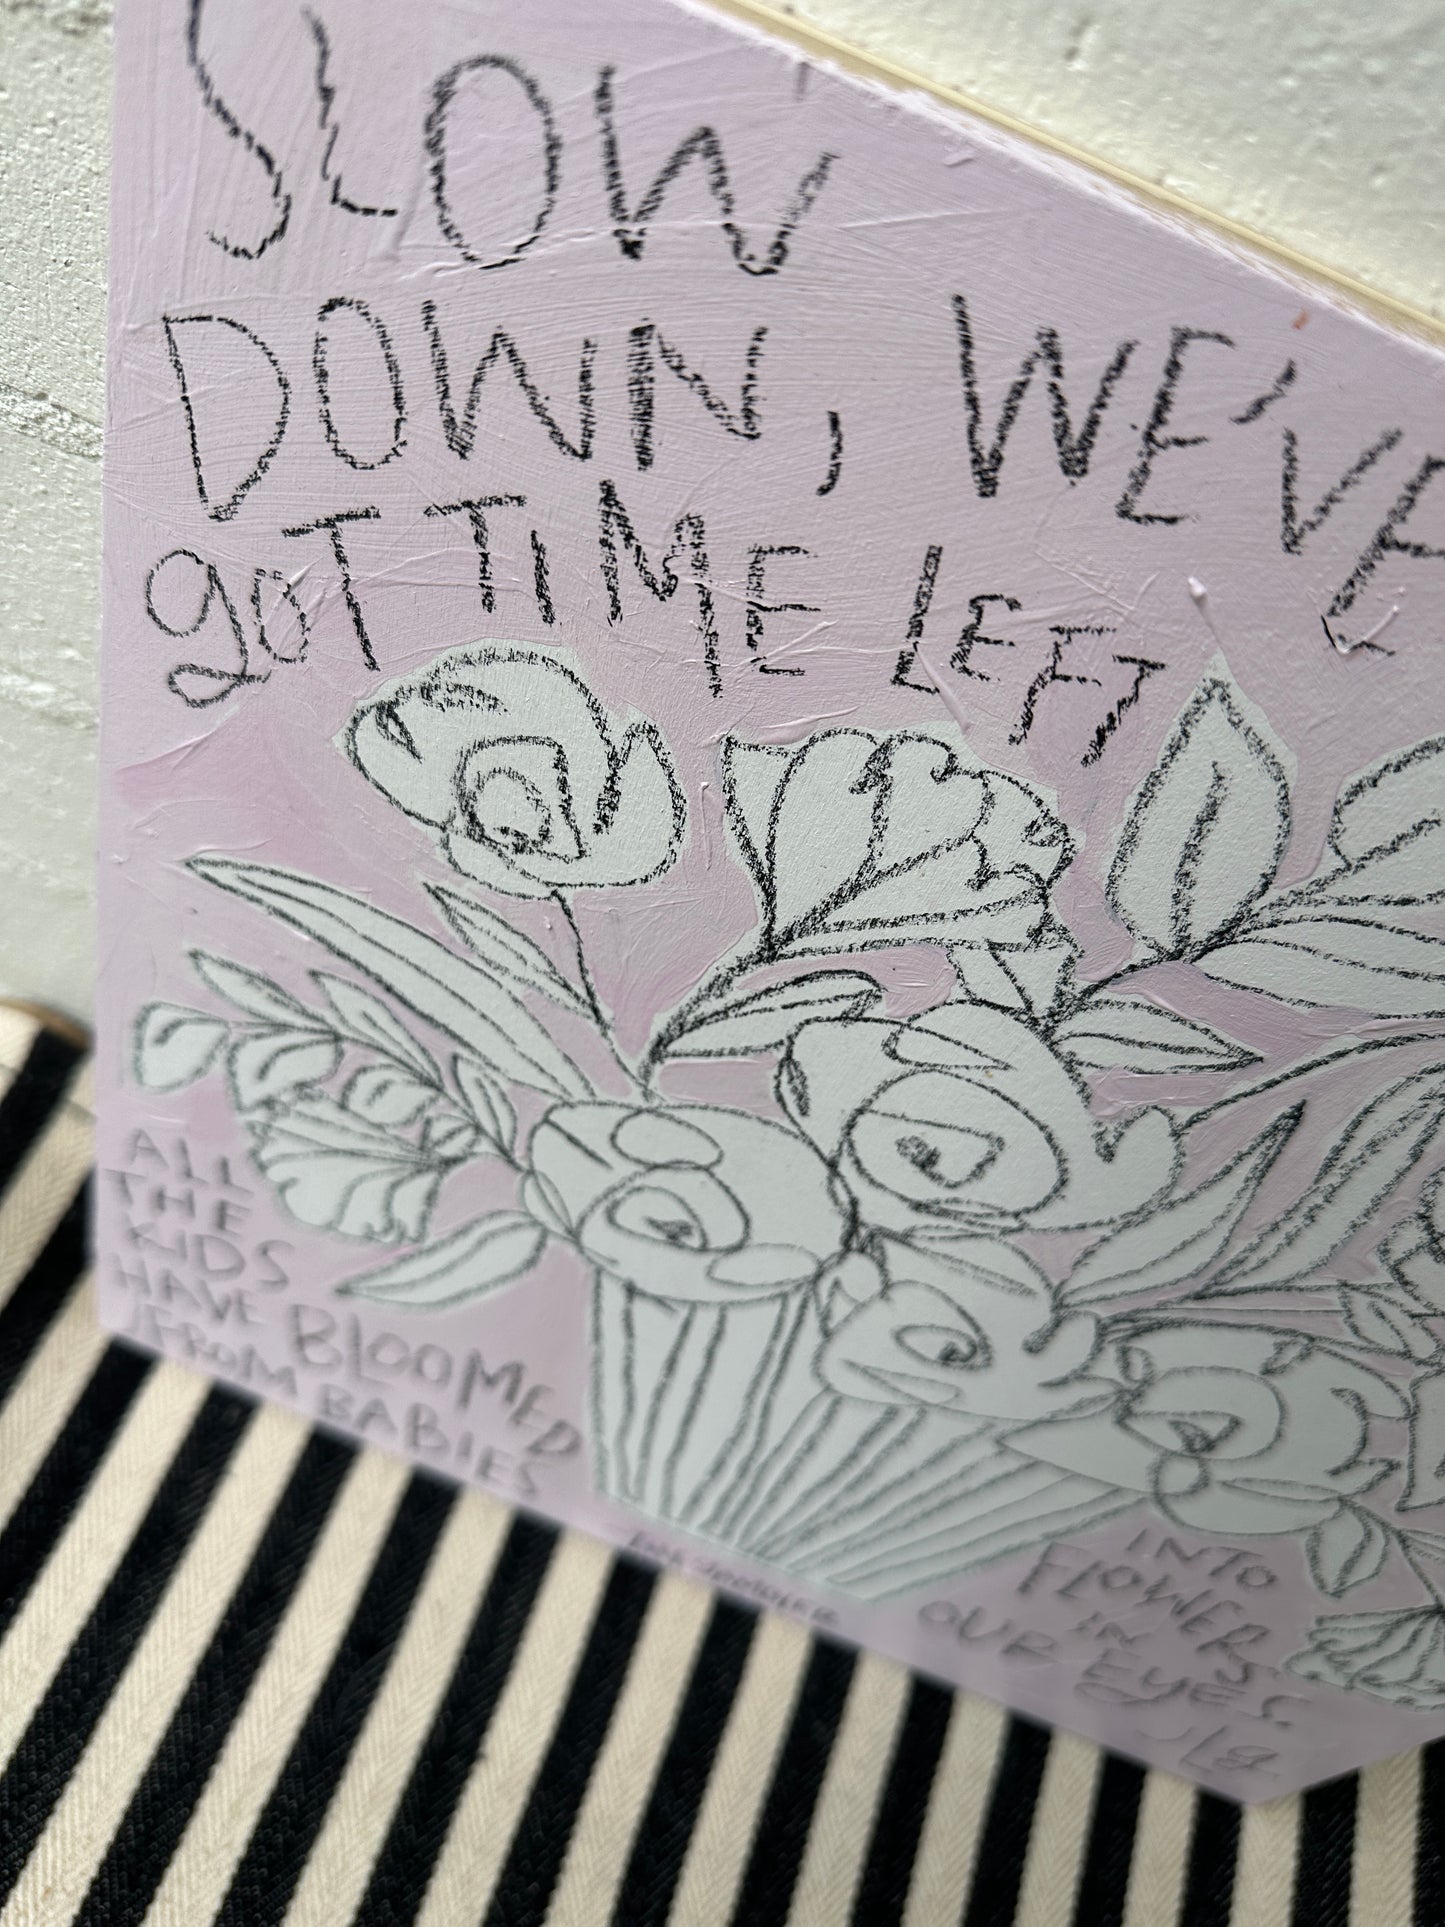 SLOW
DOWN, WE'VE
gOT TIME LEFT
ALL
THE
KIDS
HAVE BLOOMED
FROM BABIES
INTO
FLOWERS
IN
OUR EYES.